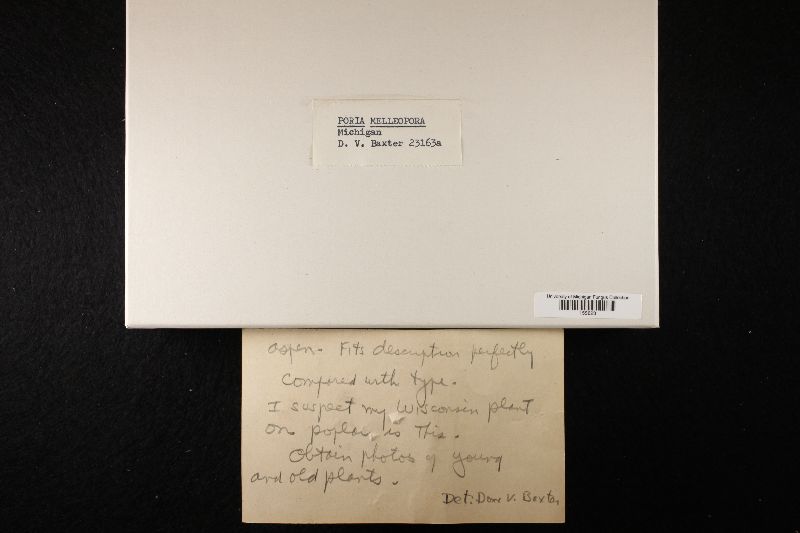 PORIA MELLEOPORA
Michigan
D. V. Baxter 23163a
University of Michigan Fungus Collection
aspen. Fits description perfectly
Compared with type.
I suspect my Wisconsin plant
on poplar is This.
Obtain photos of young
and old plants.
Det: Dow V. Baxter